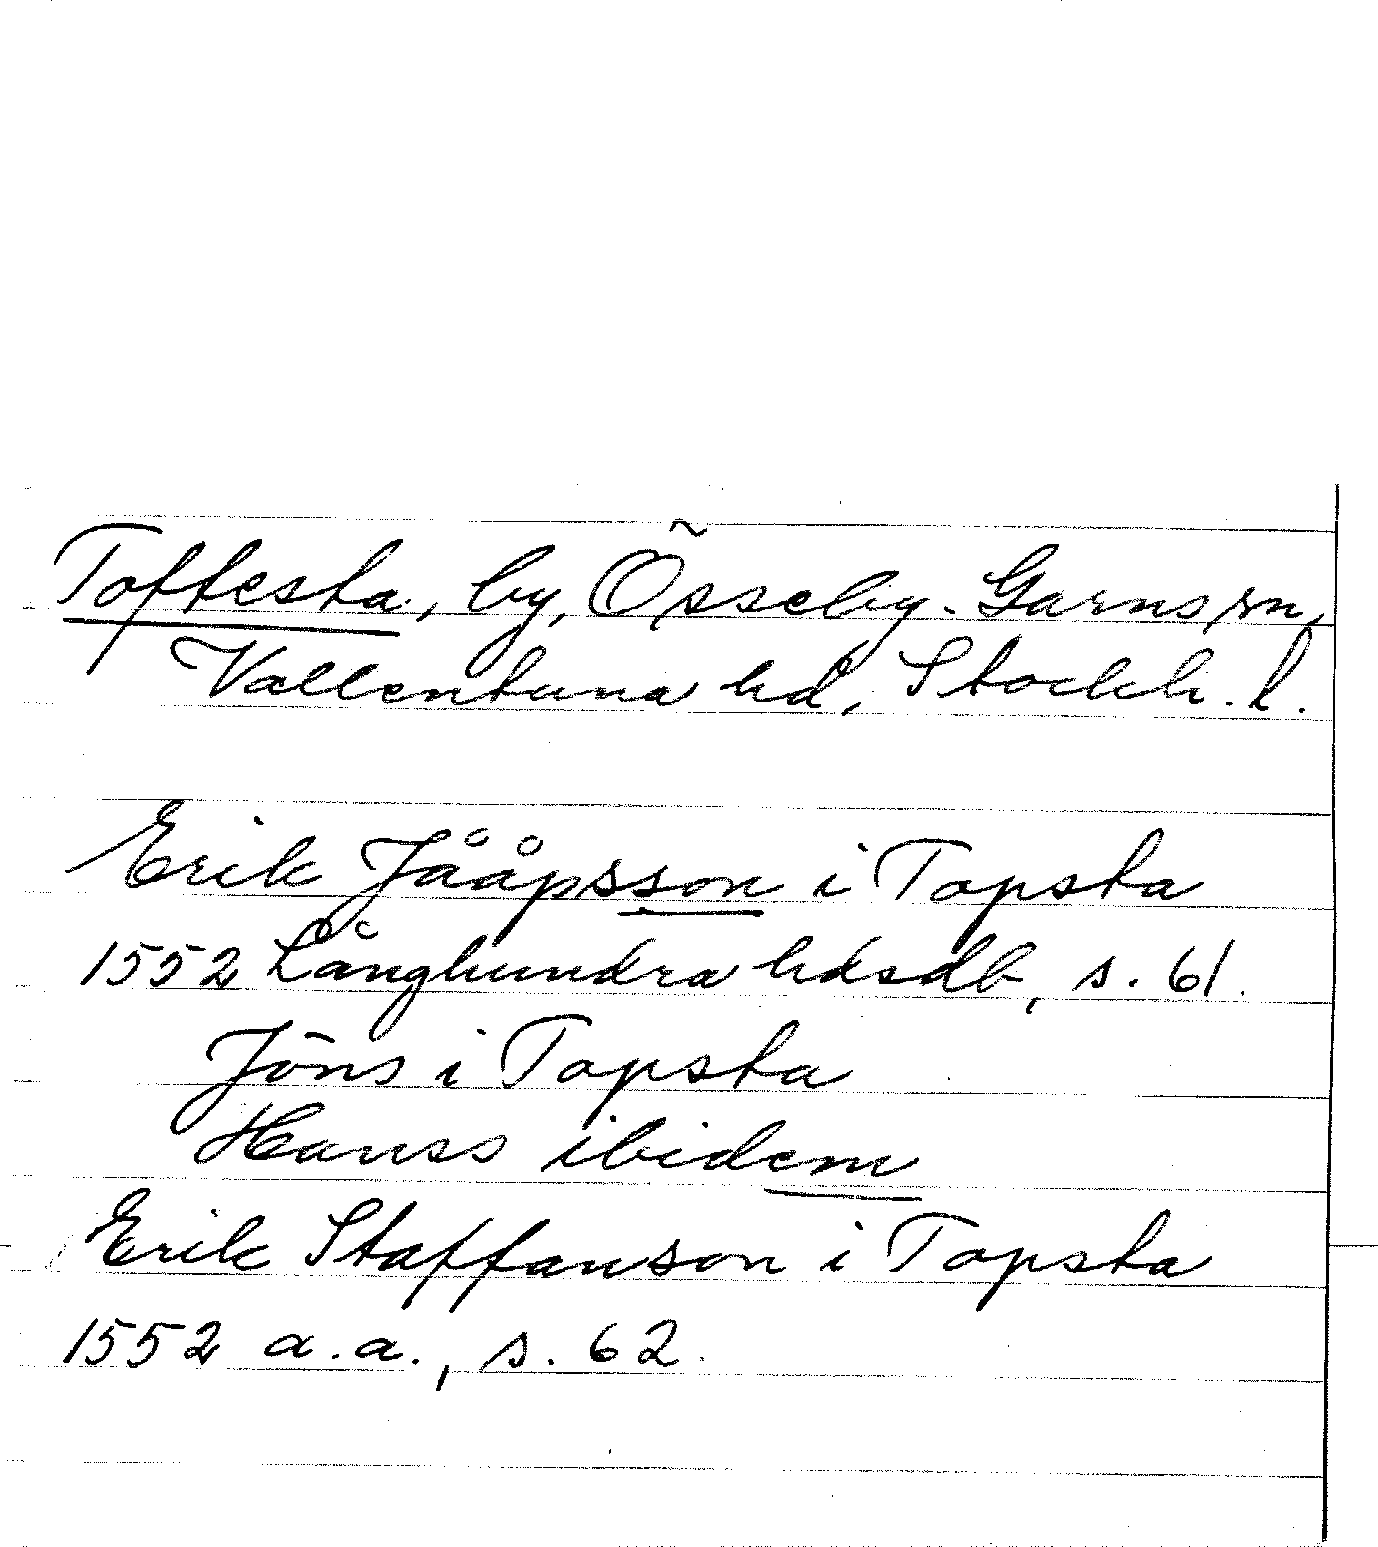 Toftesta, by, Össeby-Garns sn,
Vallentuna hd, Stockh. l.
Erik Jååpsson i Topsta
1552 Långhundra hdsdb, s. 61.
Jöns i Topsta
Hanss ibidem
Erik Staffanson i Topsta
1552 a.a., s. 62.